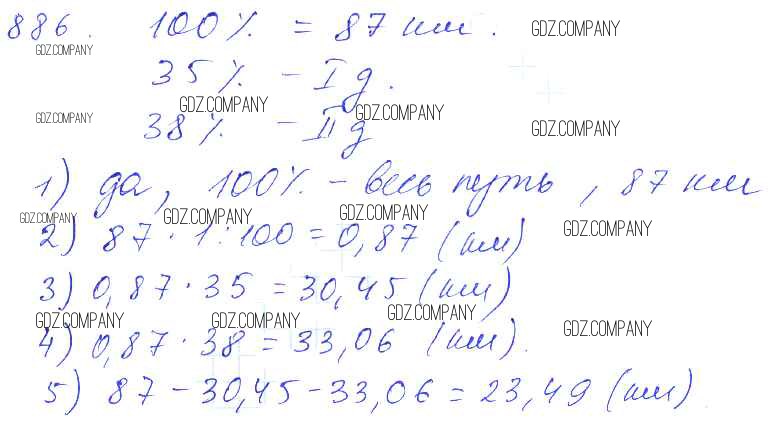 886. 100% = 87 км.
GDZ.COMPANY
GDZ.COMPANY
35% – I д.
GDZ.COMPANY
GDZ.COMPANY
GDZ.COMPANY
38% – II д
GDZ.COMPANY
1) да, 100% – весь путь, 87 км
GDZ.COMPANY
GDZ.COMPANY
GDZ.COMPANY
GDZ.COMPANY
2) 87 · 1 : 100 = 0,87 (км)
3) 0,87 · 35 = 30,45 (км)
GDZ.COMPANY
GDZ.COMPANY
GDZ.COMPANY
GDZ.COMPANY
4) 0,87 · 38 = 33,06 (км).
5) 87 – 30,45 – 33,06 = 23,49 (км)